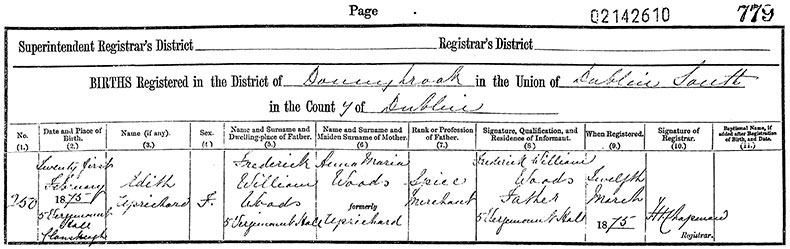 Page 02142610 779
Superintendent Registrar's District Registrar's District
BIRTHS Registered in the District of Donnybrook in the Union of Dublin South
in the County of Dublin
No. Date and Place of Birth. Name (if any). Sex. Name and Surname and Dwelling-place of Father. Name and Surname and Maiden Surname of Mother. Rank or Profession of Father. Signature, Qualification, and Residence of Informant. When Registered. Signature of Registrar. Baptismal Name, if added after Registration of Birth, and Date.
(1.) (2.) (3.) (4.) (5.) (6.) (7.) (8.) (9.) (10.) (11.)
Twenty first Frederick Anna Maria Frederick William
February Edith William Woods Spice Woods Twelfth
250 1875 Uprichard F. Woods formerly Merchant Father March H H Chapman
5 Vergemount Hall 5 Vergemount Hall Uprichard 5 Vergemount Hall 1875 Registrar.
Clonskeagh